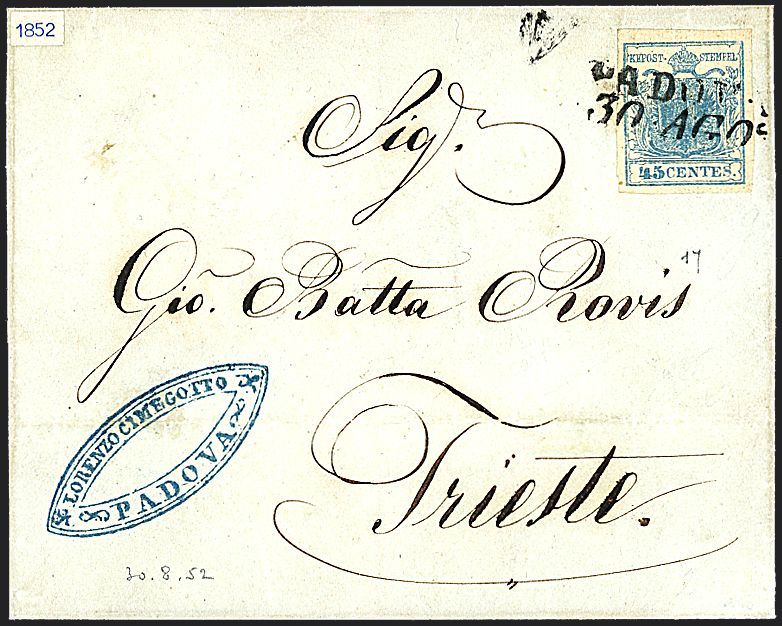 1852
KKPOST-STEMPEL
PADOVA.
30. AGOS
45 CENTES.
Sig.r
Gio. Batta Rovis
17
Trieste.
LORENZO CIMEGOTTO
PADOVA
30.8.52